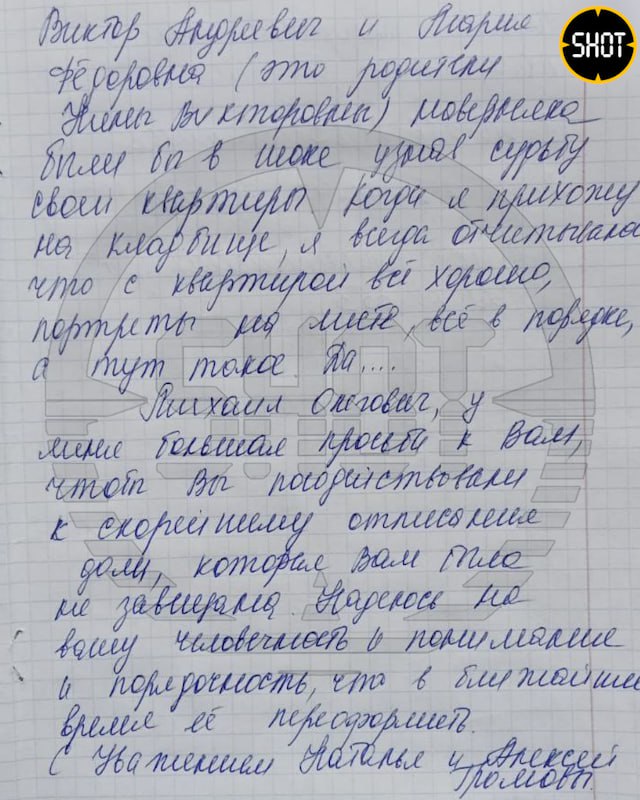 SHOT
Виктор Андреевич и Мария
Фёдоровна (это родители
Нины Викторовны) наверняка
были бы в шоке узнав судьбу
своей квартиры когда я прихожу
на кладбище, я всегда отчитываюсь
что с квартирой всё хорошо,
портреты на месте, всё в порядке,
а тут такое. Да,...
Михаил Олегович, у
меня большая просьба к Вам,
чтобы Вы посодействовали
к скорейшему отписанию
доли, которая Вам была
не завещана. Надеюсь на
вашу человечность и понимание
и порядочность, что в ближайшее
время её переоформить.
С Уважением Наталья и Алексей
Громовы.